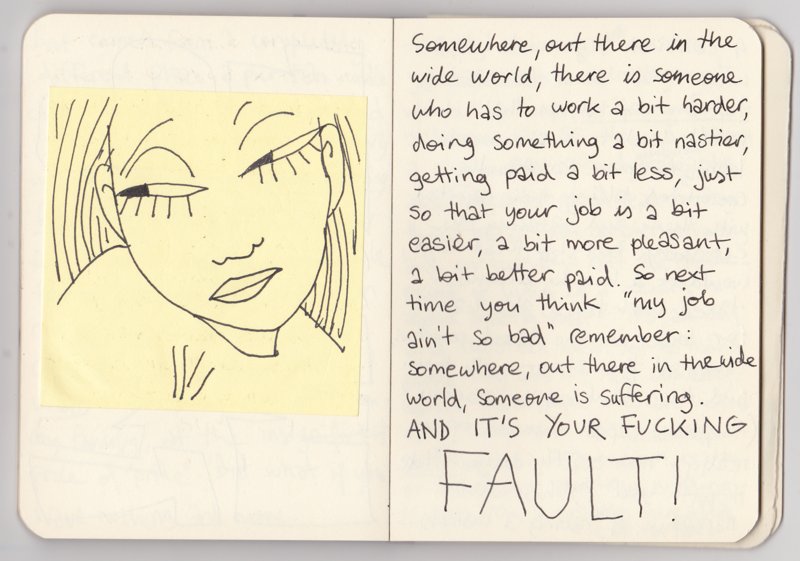 Somewhere, out there in the
wide world, there is someone
who has to work a bit harder,
doing something a bit nastier,
getting paid a bit less, just
so that your job is a bit
easier, a bit more pleasant,
a bit better paid. So next
time you think "my job
ain't so bad" remember:
somewhere, out there in the wide
world, someone is suffering.
AND IT'S YOUR FUCKING
FAULT!